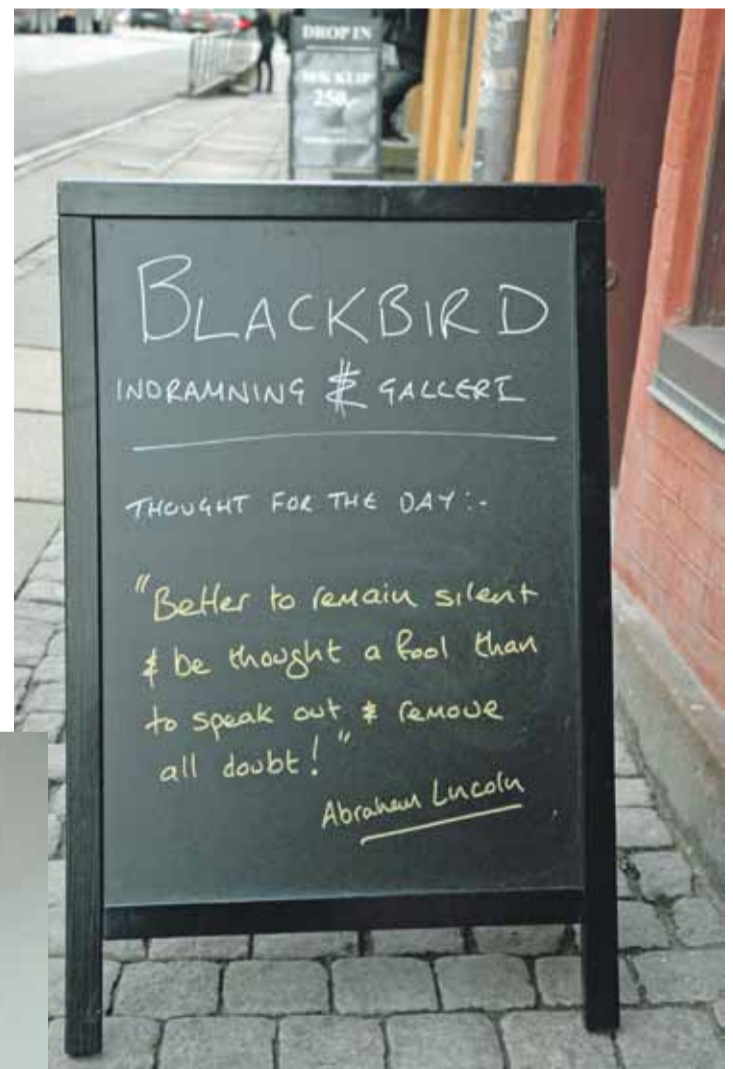 DROP IN
250,-
BLACKBIRD
INDRAMNING & GALLERI
THOUGHT FOR THE DAY:-
"Better to remain silent
& be thought a fool than
to speak out & remove
all doubt!"
Abraham Lincoln